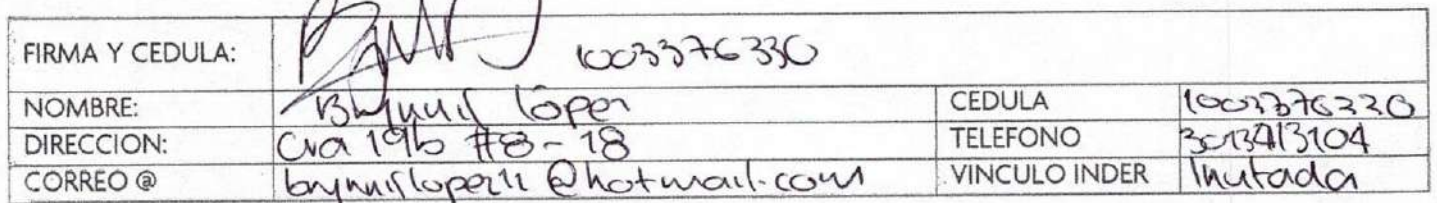 FIRMA Y CEDULA: 1003376330
NOMBRE: López CEDULA 1003376330
DIRECCION: Cra 19b #8-18 TELEFONO 3013413104
CORREO @ @hotmail.com VINCULO INDER Invitada